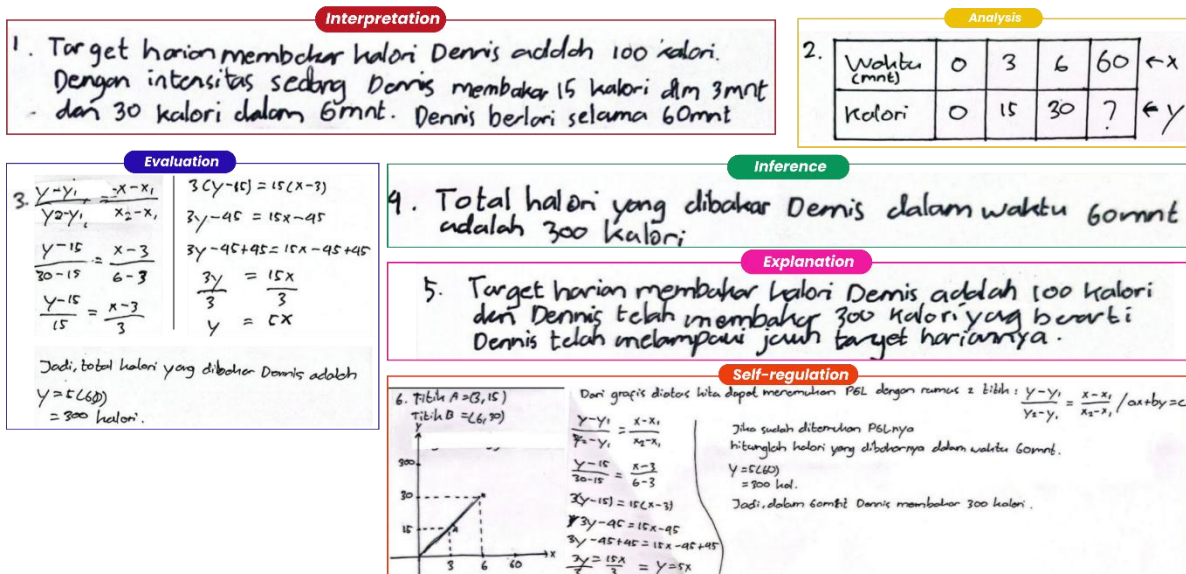 Interpretation
1. Target harian membakar kalori Dennis adalah 100 kalori.
Dengan intensitas sedang Dennis membakar 15 kalori dlm 3mnt
dan 30 kalori dalam 6mnt. Dennis berlari selama 60mnt
Analysis
2. Waktu (mnt) 0 3 6 60 ←x
Kalori 0 15 30 ? ←y
Evaluation
3. y-y₁/y₂-y₁ = x-x₁/x₂-x₁
y-15/30-15 = x-3/6-3
y-15/15 = x-3/3
3(y-15) = 15(x-3)
3y-45 = 15x-45
3y-45+45 = 15x-45+45
3y/3 = 15x/3
y = 5x
Jadi, total kalori yang dibakar Dennis adalah
y = 5(60)
= 300 kalori.
Inference
4. Total kalori yang dibakar Dennis dalam waktu 60mnt
adalah 300 kalori
Explanation
5. Target harian membakar kalori Dennis adalah 100 kalori
dan Dennis telah membakar 300 kalori yag berarti
Dennis telah melampaui jauh target hariannya.
Self-regulation
6. Titik A = (3,15)
Titik B = (6,30)
y
300
30
15
A
3 6 60 x
Dari grafis diatas kita dapat menemukan PGL dengan rumus 2 titik : y-y₁/y₂-y₁ = x-x₁/x₂-x₁ / ax+by=c
y-y₁/y₂-y₁ = x-x₁/x₂-x₁
y-15/30-15 = x-3/6-3
3(y-15) = 15(x-3)
3y-45 = 15x-45
3y-45+45 = 15x-45+45
3y/3 = 15x/3 = y=5x
Jika sudah ditemukan PGLnya
hitunglah kalori yang dibakarnya dalam waktu 60mnt.
y = 5(60)
= 300 kal.
Jadi, dalam 60mnt Dennis membakar 300 kalori.